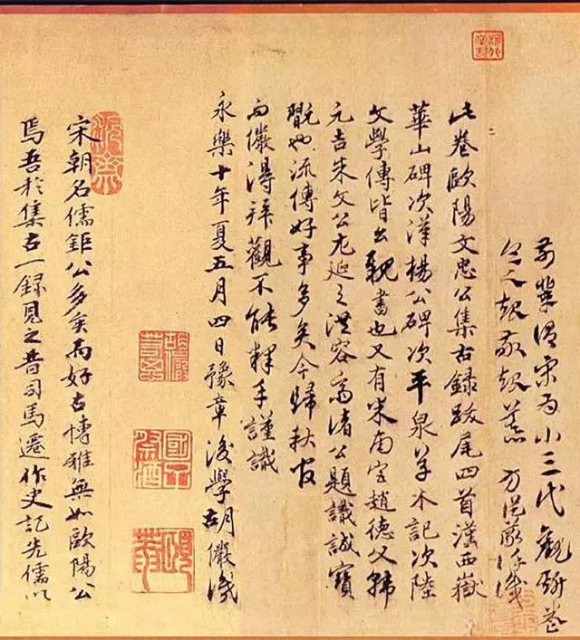 前輩謂宋為小三代觀斯卷
令人起敬起慕 方從義拜識
此卷歐陽文忠公集古錄跋尾四首漢西嶽
華山碑次漢楊公碑次平泉草木記次陸
文學傳皆公親書也又有宋南宮趙德父韓
元吉朱文公尤延之洪容齋諸公題識誠寶
翫也流傳好事多矣今歸秋官
而儼得拜觀不能釋手謹識
永樂十年夏五月四日豫章後學胡儼識
胡儼若思
國子祭酒
頤菴
宋朝名儒鉅公多矣而好古博雅無如歐陽公
焉吾於集古一錄見之昔司馬遷作史記先儒以